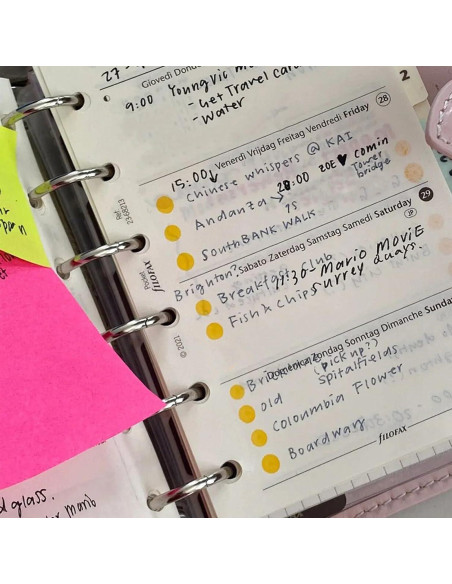 27-
Giovedì Dond
9:00 Young Vic m
- Get Travel card
- Water
2
Venerdì Vrijdag Freitag Vendredi Friday 28
15:00
Chinese whispers @ KAI
Andanza → 20:00 ZOE ♥ comin
Tower bridge
SOUTHBANK WALK
Sabato Zaterdag Samstag Samedi Saturday 29
Brighton?
Breakfast club
9:30- Mario MOVIE
Fish & Chips
surrey quays.
Domenica Zondag Sonntag Dimanche Sunda
Brick lane (pick up?)
old spitalfields
Coloumbia Flower
Boardway
FILOFAX
Ref. 23-68213
Pocket FILOFAX
© 2021
d glass.
Mario